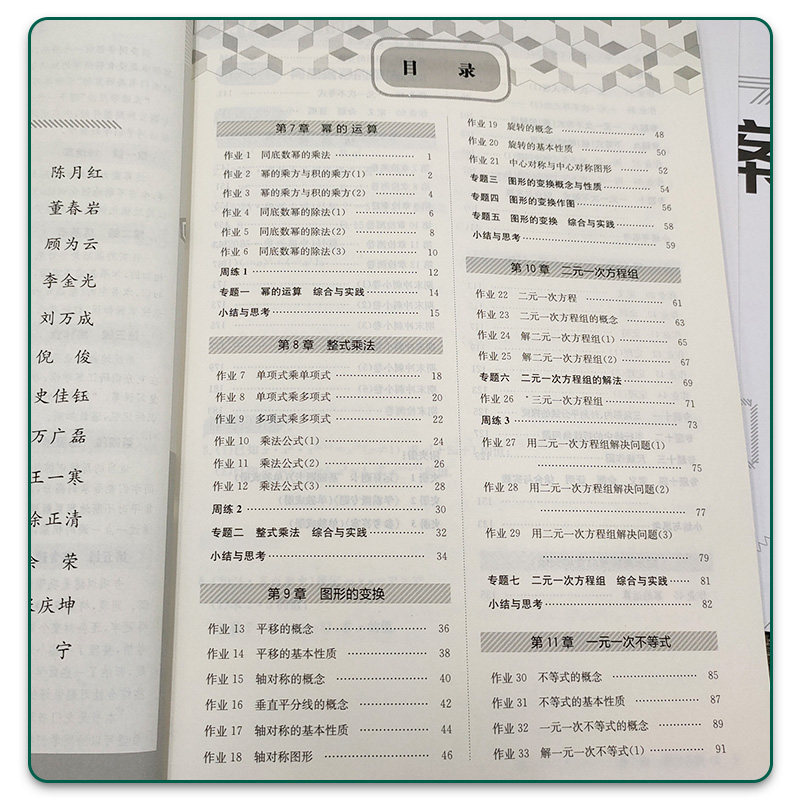 陈月红
董春岩
顾为云
李金光
刘万成
倪 俊
史佳钰
万广磊
王一寒
徐正清
荣
庆坤
宁
目 录
第7章 幂的运算
作业1 同底数幂的乘法 …… 1
作业2 幂的乘方与积的乘方(1) …… 2
作业3 幂的乘方与积的乘方(2) …… 4
作业4 同底数幂的除法(1) …… 6
作业5 同底数幂的除法(2) …… 8
作业6 同底数幂的除法(3) …… 10
周练1 …… 12
专题一 幂的运算 综合与实践 …… 14
小结与思考 …… 15
第8章 整式乘法
作业7 单项式乘单项式 …… 18
作业8 单项式乘多项式 …… 20
作业9 多项式乘多项式 …… 22
作业10 乘法公式(1) …… 24
作业11 乘法公式(2) …… 26
作业12 乘法公式(3) …… 28
周练2 …… 30
专题二 整式乘法 综合与实践 …… 32
小结与思考 …… 34
第9章 图形的变换
作业13 平移的概念 …… 36
作业14 平移的基本性质 …… 38
作业15 轴对称的概念 …… 40
作业16 垂直平分线的概念 …… 42
作业17 轴对称的基本性质 …… 44
作业18 轴对称图形 …… 46
作业19 旋转的概念 …… 48
作业20 旋转的基本性质 …… 50
作业21 中心对称与中心对称图形 …… 52
专题三 图形的变换概念与性质 …… 54
专题四 图形的变换作图 …… 56
专题五 图形的变换 综合与实践 …… 58
小结与思考 …… 59
第10章 二元一次方程组
作业22 二元一次方程 …… 61
作业23 二元一次方程组的概念 …… 63
作业24 解二元一次方程组(1) …… 65
作业25 解二元一次方程组(2) …… 67
专题六 二元一次方程组的解法 …… 69
作业26 *三元一次方程组 …… 71
周练3 …… 73
作业27 用二元一次方程组解决问题(1)
…… 75
作业28 用二元一次方程组解决问题(2)
…… 77
作业29 用二元一次方程组解决问题(3)
…… 79
专题七 二元一次方程组 综合与实践 …… 81
小结与思考 …… 82
第11章 一元一次不等式
作业30 不等式的概念 …… 85
作业31 不等式的基本性质 …… 87
作业32 一元一次不等式的概念 …… 89
作业33 解一元一次不等式(1) …… 91